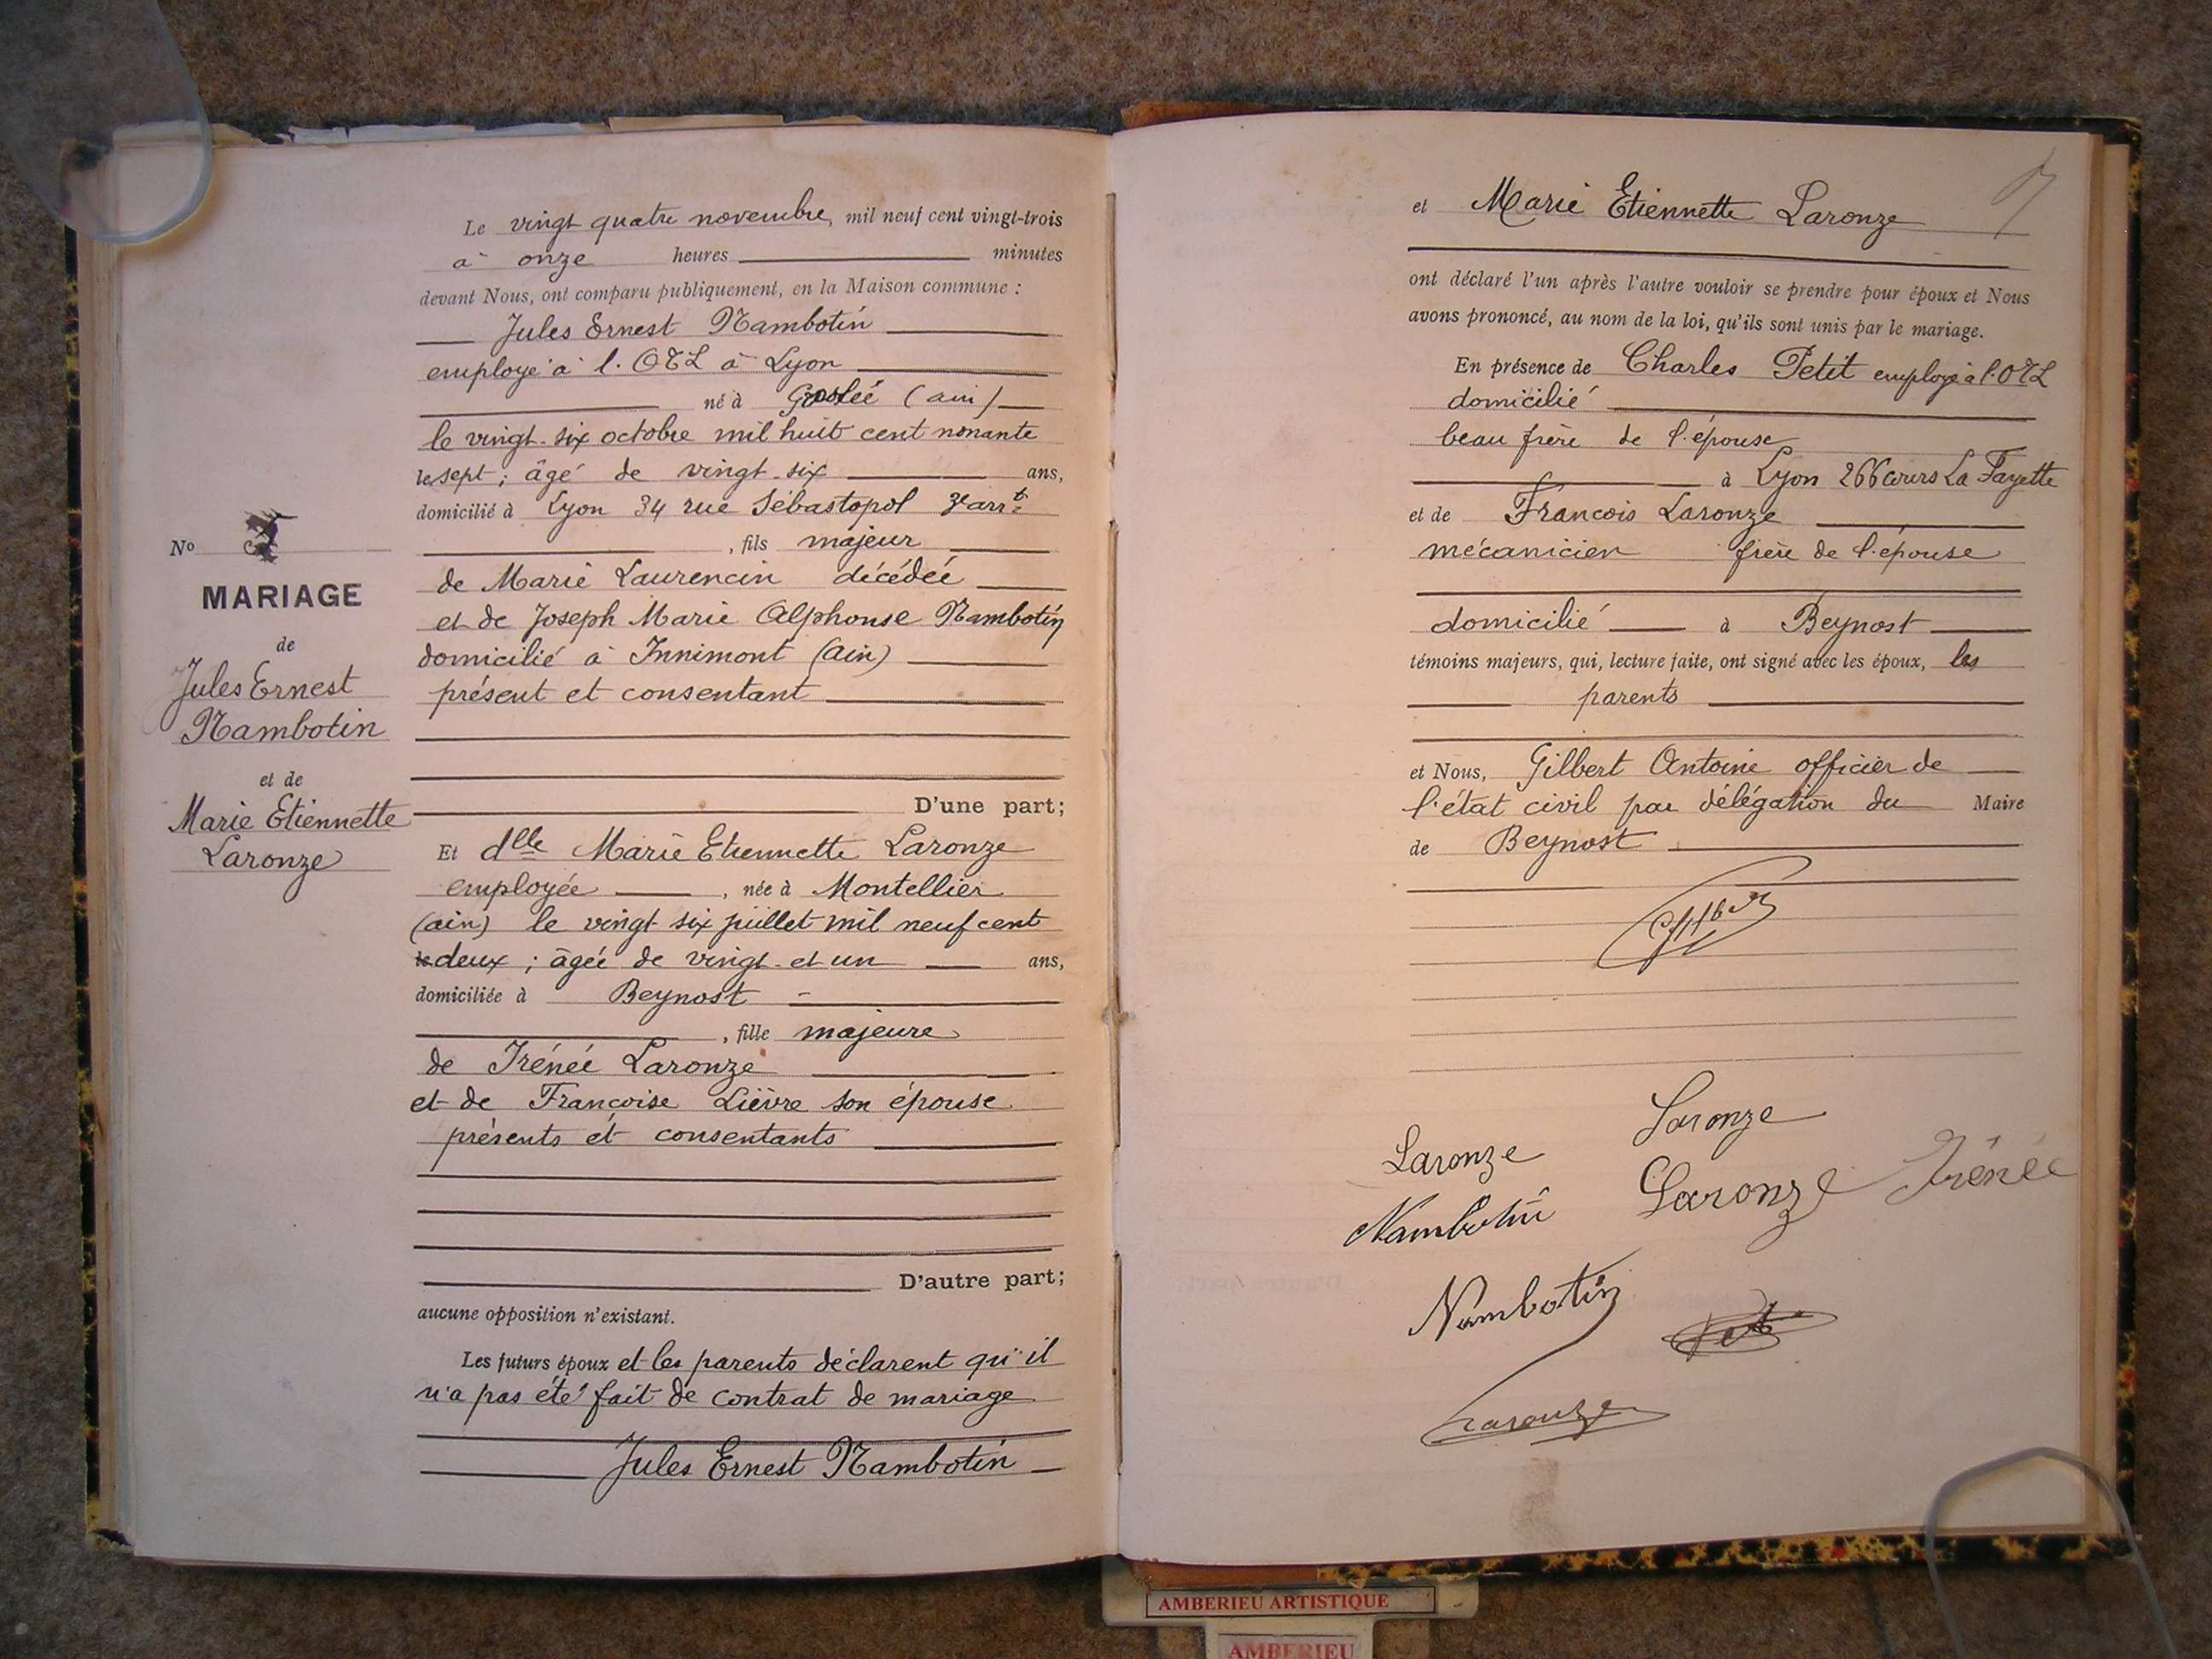 Le vingt quatre novembre, mil neuf cent vingt-trois
à onze heures minutes
devant Nous, ont comparu publiquement, en la Maison commune :
Jules Ernest Nambotin
employé à l'OTL à Lyon
né à (ain)
le vingt-six octobre mil huit cent nonante
le sept ; âgé de vingt-six ans,
domicilié à Lyon 34 rue Sébastopol 3e arrt
, fils majeur
de Marie Laurencin décédée
et de Joseph Marie Alphonse Nambotin
domicilié à Innimont (Ain)
présent et consentant
D'une part;
No
MARIAGE
de
Jules Ernest
Nambotin
et de
Marie Etiennette
Laronze
Et dlle Marie Etiennette Laronze
employée , née à Montellier
(ain) le vingt-six juillet mil neuf cent
le deux ; âgée de vingt-et un ans,
domiciliée à Beynost
, fille majeure
de Irénée Laronze
et de Françoise Lièvre son épouse
présents et consentants
D'autre part;
aucune opposition n'existant.
Les futurs époux et les parents déclarent qu'il
n'a pas été fait de contrat de mariage
Jules Ernest Nambotin
et Marie Etiennette Laronze
ont déclaré l'un après l'autre vouloir se prendre pour époux et Nous
avons prononcé, au nom de la loi, qu'ils sont unis par le mariage.
En présence de Charles Petit employé à l'OTL
domicilié
beau frère de l'épouse
à Lyon 266 cours La Fayette
et de Francois Laronze
mécanicien frère de l'épouse
domicilié à Beynost
témoins majeurs, qui, lecture faite, ont signé avec les époux, les
parents
et Nous, Gilbert Antoine officier de
l'état civil par délégation du Maire
de Beynost
Laronze
Laronze
Laronze Irénée
Nambotin
Nambotin
Laronze
AMBERIEU ARTISTIQUE
AMBERIEU